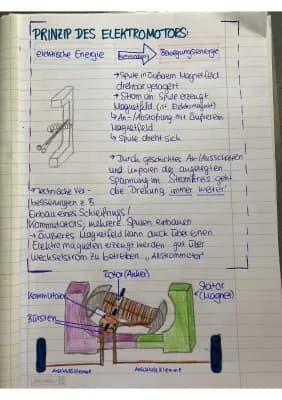 PRINZIP DES ELEKTROMOTORS:
elektrische Energie
Bewegungsenergie
→ Spule in äußerem Magnetfeld
drehbar gelagert
→ Strom an: Spule erzeugt
Magnetfeld (ist Elektromagnet)
→ An-/Abstoßung mit äußerem
Magnetfeld
→ Spule dreht sich
→ Durch geschicktes An-/Ausschalten
und Umpolen der angelegten
Spannung im Stromkreis geht
die Drehung immer weiter!
→ Technische Ver-
besserungen z.B.
Einbau eines Schleifrings/
Kommutators, mehrere Spulen einbauen
→ Äußeres Magnetfeld kann auch über einen
Elektromagneten erzeugt werden gut über
Wechselstrom zu betreiben „Allstrommotor"
Rotor (Anker)
Kommutator
Stator
(Magnet)
Bürsten
Anschlussklemme
Anschlussklemme